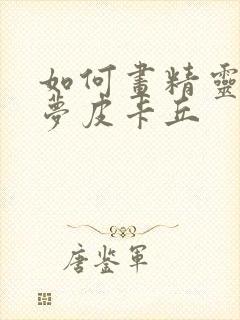 如何畫精靈
夢皮卡丘
唐鉴軍